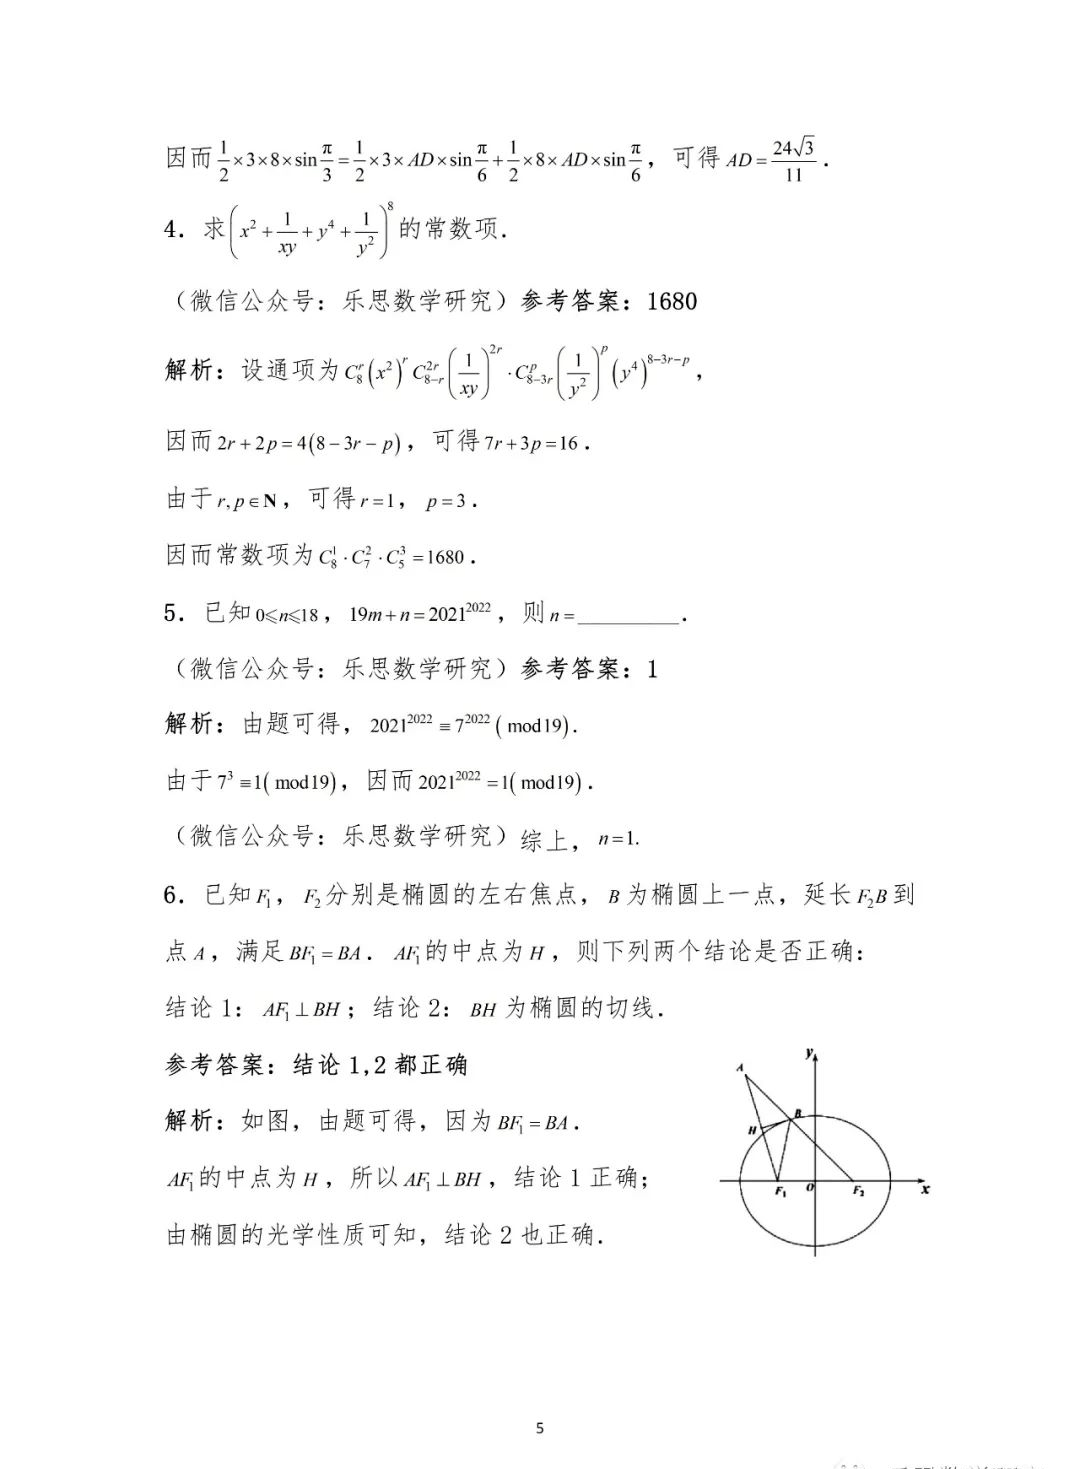 因而 1/2×3×8×sin π/3 = 1/2×3×AD×sin π/6 + 1/2×8×AD×sin π/6，可得 AD = 24√3/11．
4．求(x² + 1/xy + y⁴ + 1/y²)⁸的常数项．
（微信公众号：乐思数学研究）参考答案：1680
解析：设通项为 C₈ʳ(x²)ʳ C₈₋ᵣ²ʳ(1/xy)²ʳ · C₈₋₃ᵣᵖ(1/y²)ᵖ(y⁴)⁸⁻³ʳ⁻ᵖ，
因而 2r + 2p = 4(8 − 3r − p)，可得 7r + 3p = 16．
由于 r, p ∈ N，可得 r = 1，p = 3．
因而常数项为 C₈¹ · C₇² · C₅³ = 1680．
5．已知 0≤n≤18，19m + n = 2021²⁰²²，则 n = ________．
（微信公众号：乐思数学研究）参考答案：1
解析：由题可得，2021²⁰²² ≡ 7²⁰²² ( mod19)．
由于 7³ ≡ 1( mod19)，因而 2021²⁰²² = 1( mod19)．
（微信公众号：乐思数学研究）综上，n = 1.
6．已知 F₁，F₂分别是椭圆的左右焦点，B 为椭圆上一点，延长 F₂B 到
点 A，满足 BF₁ = BA．AF₁的中点为 H，则下列两个结论是否正确：
结论 1：AF₁ ⊥ BH；结论 2：BH 为椭圆的切线．
参考答案：结论 1,2 都正确
解析：如图，由题可得，因为 BF₁ = BA．
AF₁的中点为 H，所以 AF₁ ⊥ BH，结论 1 正确；
由椭圆的光学性质可知，结论 2 也正确．
y
A
B
H
F₁
O
F₂
x
5